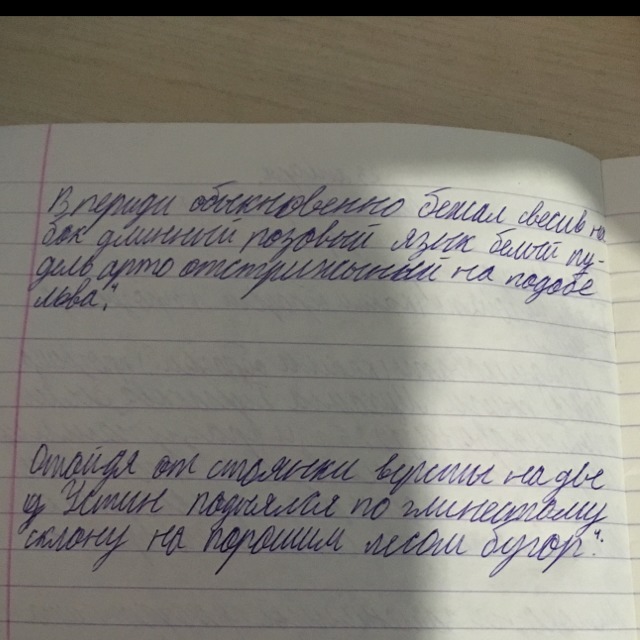 Впериди обыкновенно бежал свесив на
бок длинный розовый язык белый пу-
дель арто отстрижыный на подобе
льва."
Отайдя от стоянки версты на две
Устин поднялся по глинестому
склону на порошим лесом бугор".